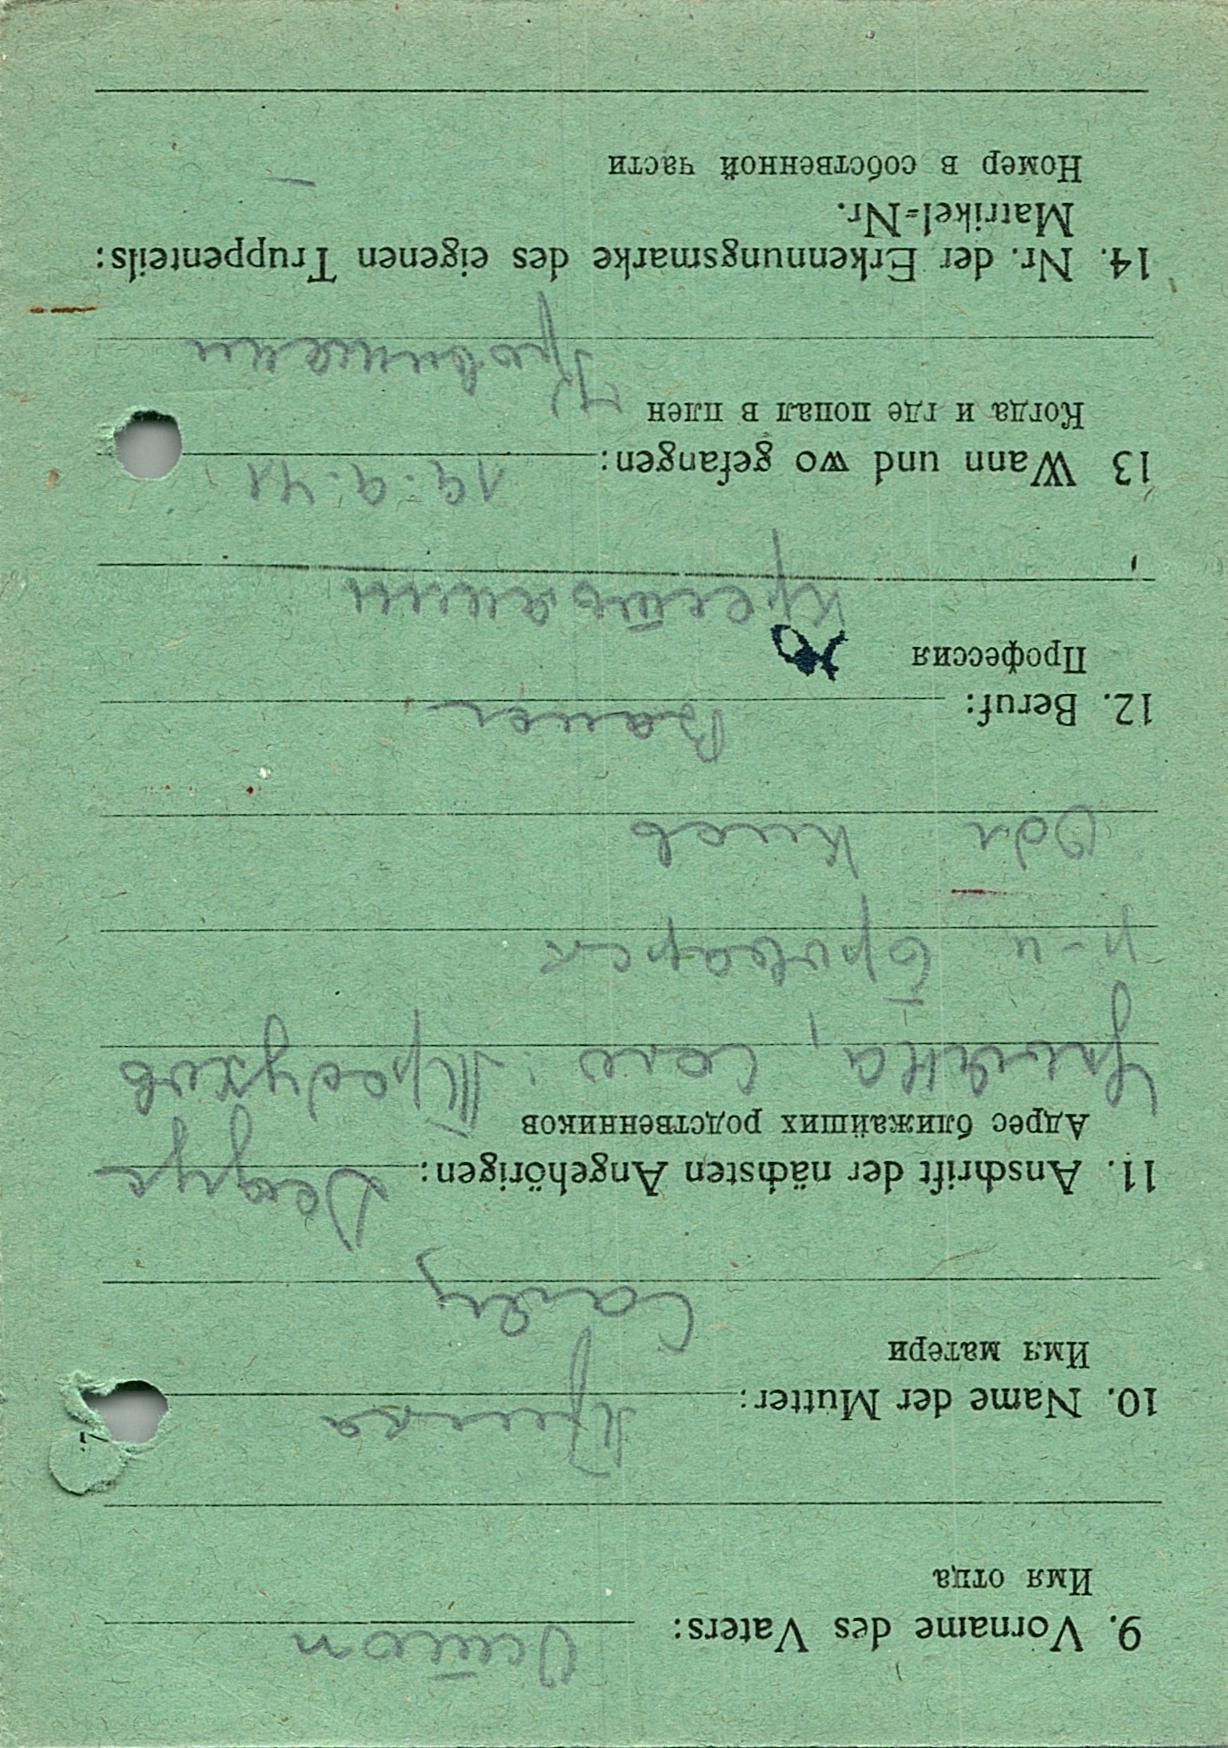 9. Vorname des Vaters: Остап
Имя отца
10. Name der Mutter:
Имя матери
11. Anschrift der nächsten Angehörigen:
Адрес ближайших родственников
село: Требухов
р-н Броварск
Обл Киев
12. Beruf: Bauer
Профессия
Крестьянин
13 Wann und wo gefangen: 19.9.41
Когда и где попал в плен
14. Nr. der Erkennungsmarke des eigenen Truppenteils:
Matrikel=Nr.
Номер в собственной части —